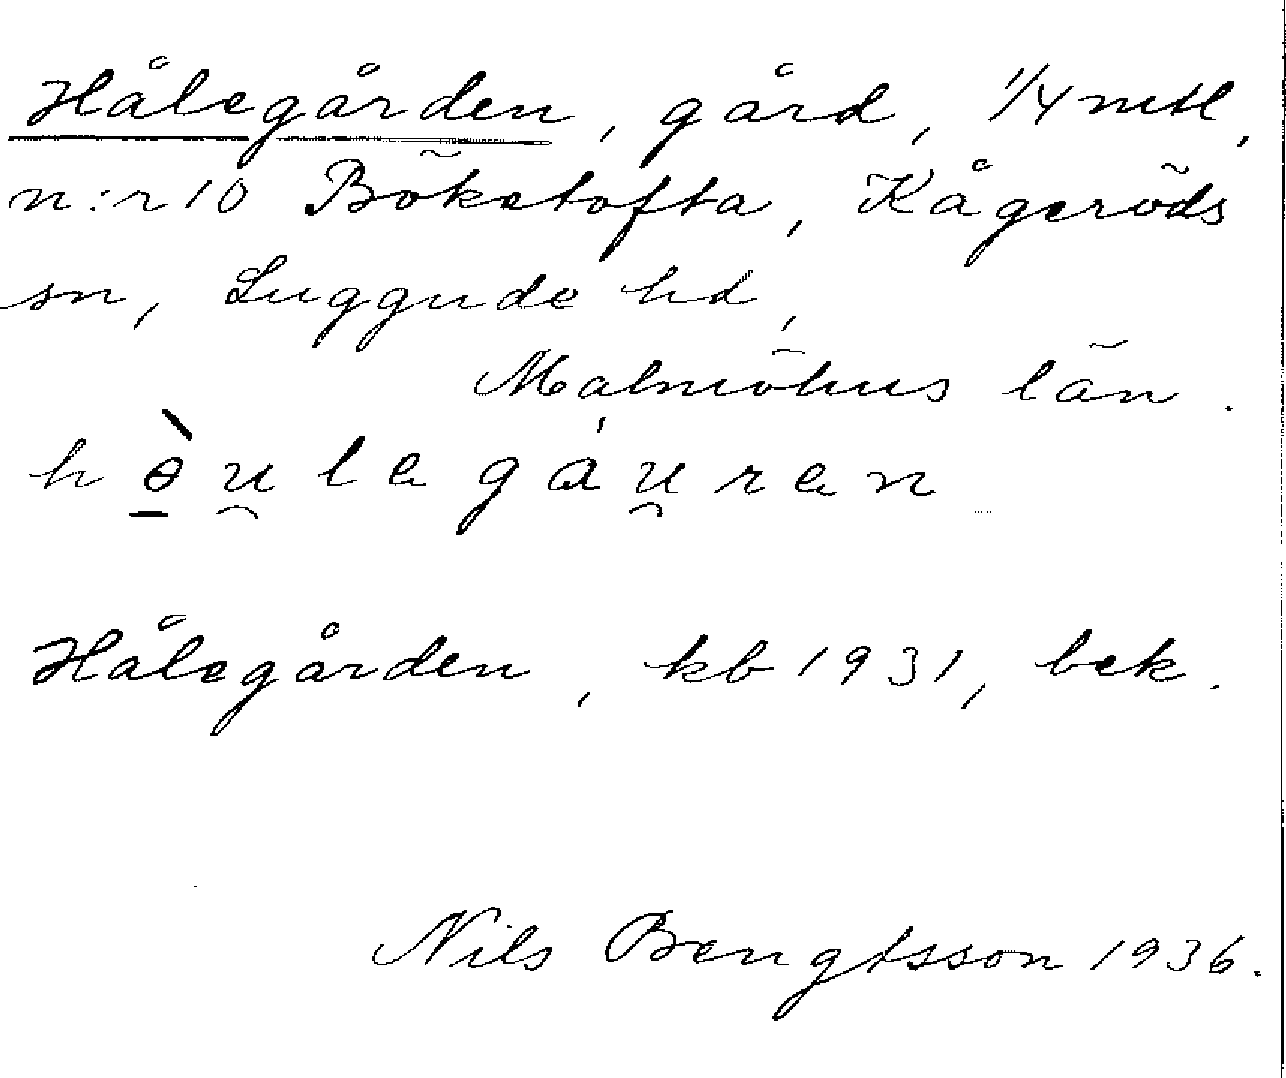 Hålegården, gård, 1/4 mtl,
n:r 10 Böketofta, Kågeröds
sn, Luggude hd,
Malmöhus län.
hɵ̠̀u̯legáu̯ren
Hålegården, kb 1931, bek.
Nils Bengtsson 1936.